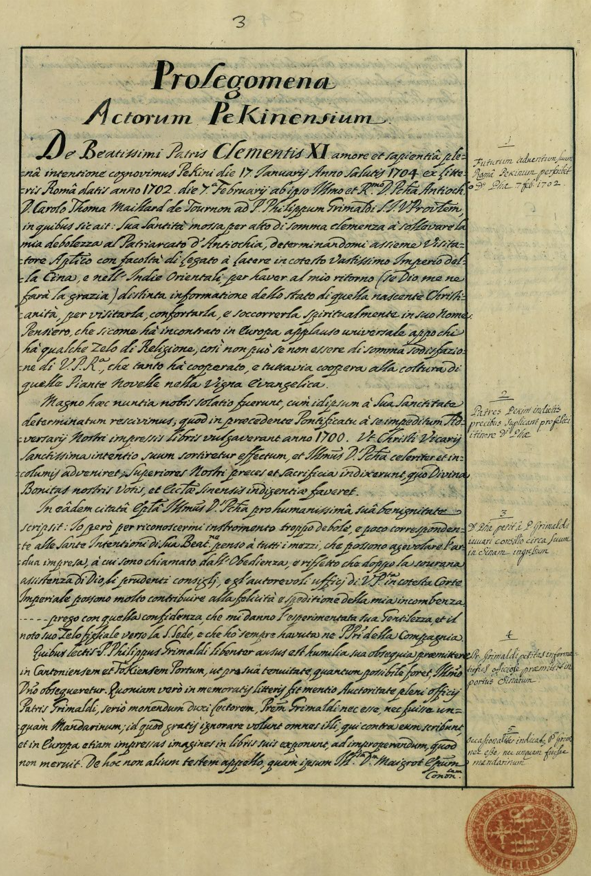 3
Prolegomena
Actorum Pekinensium.
De Beatissimi Patris Clementis XI amore et sapientiâ ple-
nâ intentione cognovimus Pekini die 17 Januarij Anno Salutis 1704 ex litte-
ris Româ datis anno 1702. die 7 Februarij ab ipso Illmo et Rmo D. Patriarchâ Antioch.
D. Carolo Thoma Maillard de Tournon ad P. Philippum Grimaldi S.J. V. Provlem,
in quibus sic ait: Sua Santità mossa per atto di somma clemenza à sollevare la
mia debolezza al Patriarcato d'Antiochia, determinandomi assieme Visita-
tore Aplico con facoltà di Legato à latere in cotesto Vastissimo Imperio del-
la Cina, e nell'Indie Orientali, per haver al mio ritorno (se Dio me ne
farà la grazia) distinta informatione dello stato di quella nascente Christi-
anità, per visitarla, confortarla, e soccorrerla spiritualmente in suo Nome
Pensiero, che sicome hà incontrato in Europa applauso universale appo chi
hà qualche Zelo di Religione, così non può se non essere di somma sodisfazio-
ne di V.P.Ra, che tanto hà cooperato, e tuttavia coopera alla coltura di
quelle Piante Novelle nella Vigna Evangelica.
Magno hæc nuntia nobis solatio fuerunt, cum id ipsum à Suâ Sanctitate
determinatum rescivimus, quod in præcedente Pontificatu à se impeditum Ad-
versarij Nostri impressis libris vulgaverant anno 1700. Ut Christi Vicarij
Sanctissima intentio suum sortiretur effectum, et Illmus D. Patriarcha celeriter et in-
columis adveniret, Superiores Nostri preces et Sacrificia indixerunt, quo Divina
Bonitas nostris votis, et Ecclesiæ Sinensis indigentiæ faveret.
In eâdem citatâ Eplâ Illmus D. Patriarcha pro humanissimâ suâ benignitate
scripsit: Io però per riconoscermi instromento troppo debole, e poco corresponden-
te alle Sante Intentioni di Sua Beatne penso à tutti i mezzi, che possono agevolare l'ar-
dua impresa, à cui sono chiamato dall'Obedienza, e rifletto che doppo la sourana
assistenza di Dio le prudenti consigli, e gl'autorevoli ufficj di V.P. in cotesta Corte
Imperiale possono molto contribuire alla felicità e speditione della mia incombenza
------ prego con quella confidenza che mi danno l'esperimentata sua Gentilezza et il
noto suo Zelo filiale verso la S. Sede, e che hò sempre havuta ne PPri della Compagnia
Quibus lectis P. Philippus Grimaldi libenter ausus est humilia sua obsequia præmittere
in Cantoniensem et Fokiensem Portum, ut pro suâ tenuitate, quantum possibile foret, Illmo
Dno obsequeretur. Quoniam verò in memoratis literis fit mentio Auctoritate pleni officij
Patris Grimaldi, serio monendum duxi Lectorem, Prem Grimaldi nec esse, nec fuisse un-
quam Mandarinum; id quod gratis ignorare volunt omnes illi, qui contra eum scribunt
et in Europa etiam impressas imagines in libris suis exponunt, ad improperandum, quod
non meruit. De hoc non alium testem appello, quam ipsum Illm Dm Maigrot Epum
Conon.
1
Futurum adventum suum
Româ Pekinum perscribit
2
Patres Pekini indictis
precibus suplicant
3
4
5
nec esse, nec unquam fuisse
mandarinum